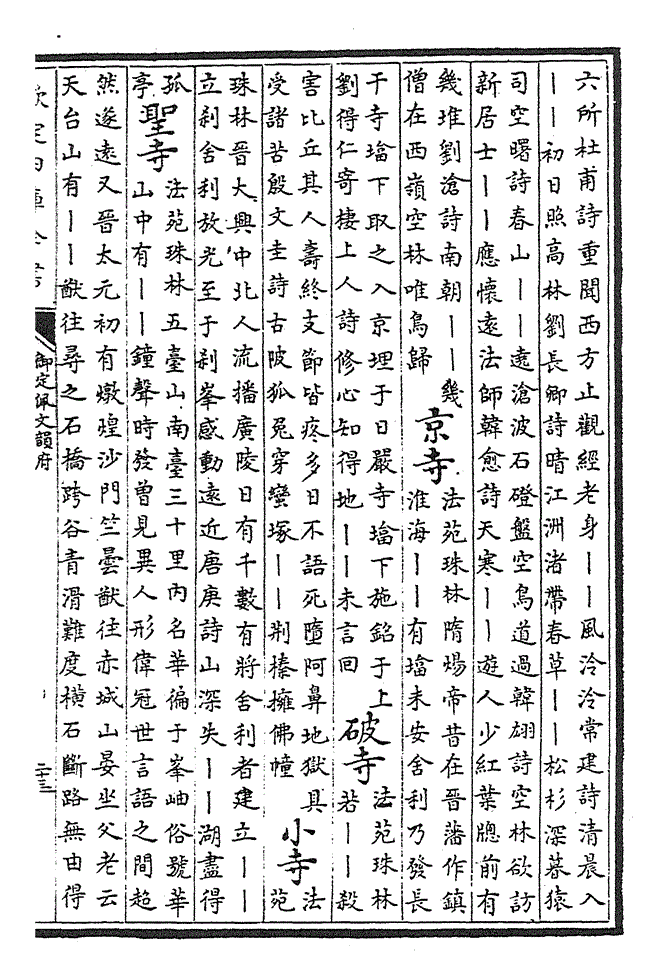 六所杜甫詩重聞西方止觀經老身——風泠泠常建詩清晨入
——初日照高林劉長卿詩晴江洲渚帶春草——松杉深暮猿
司空曙詩春山——遠滄波石磴盤空鳥道過韓翃詩空林欲訪
新居士——應懷遠法師韓愈詩天寒——遊人少紅葉牕前有
幾堆劉滄詩南朝——幾
僧在西嶺空林唯鳥歸
京寺
法苑珠林隋煬帝昔在晉藩作鎮
淮海——有㙮未安舍利乃發長
干寺㙮下取之入京埋于日嚴寺㙮下施銘于上
劉得仁寄棲上人詩修心知得地——未言回
破寺
法苑珠林
若——殺
害比丘其人壽終支節皆疼多日不語死墮阿鼻地獄具
受諸苦殷文圭詩古陂狐兔穿蠻塚——荆榛擁佛幢
小寺
法
苑
珠林晉大興中北人流播廣陵日有千數有將舍利者建立——
立刹舍利放光至于刹峯感動遠近唐庚詩山深失——湖盡得
孤
亭
聖寺
法苑珠林五臺山南臺三十里内名華徧于峯岫俗號華
山中有——鐘聲時發曾見異人形偉冠世言語之間超
然遂遠又晉太元初有燉煌沙門竺曇猷往赤城山晏坐父老云
天台山有——猷往尋之石橋跨谷青滑難度橫石斷路無由得
欽定四庫全書
御定佩文韻府
二十三